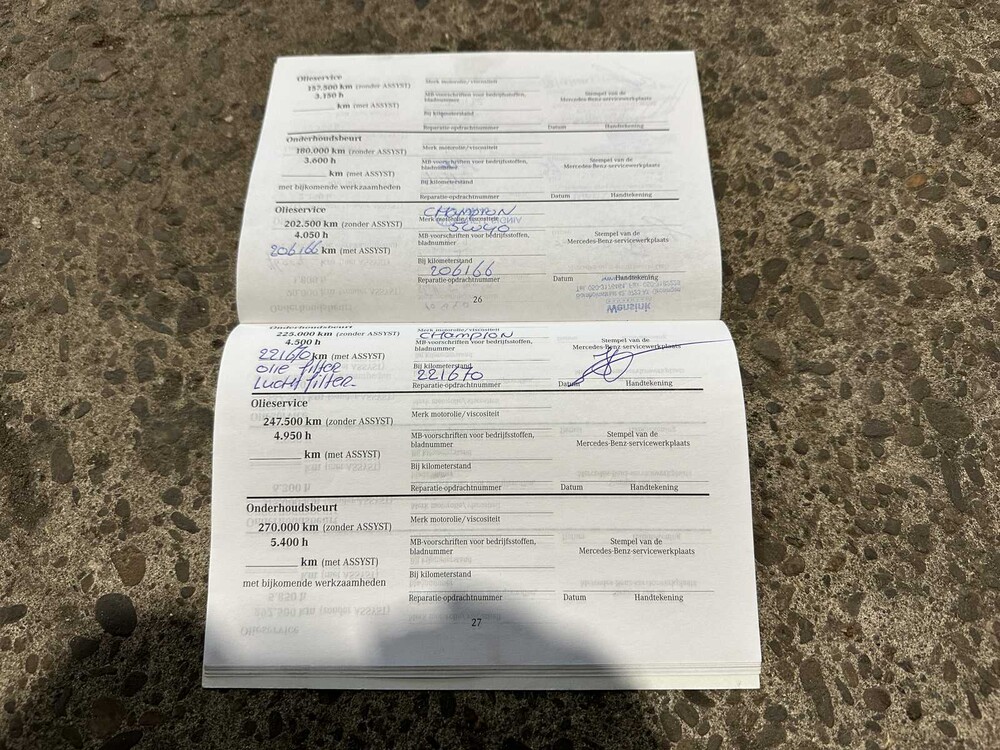 Olieservice
157.500 km (zonder ASSYST)
3.150 h
km (met ASSYST)
Merk motorolie/viscositeit
MB-voorschriften voor bedrijfsstoffen,
bladnummer
Bij kilometerstand
Reparatie-opdrachtnummer
Stempel van de
Mercedes-Benz-servicewerkplaats
Datum Handtekening
Onderhoudsbeurt
180.000 km (zonder ASSYST)
3.600 h
km (met ASSYST)
met bijkomende werkzaamheden
Merk motorolie/viscositeit
MB-voorschriften voor bedrijfsstoffen,
bladnummer
Bij kilometerstand
Reparatie-opdrachtnummer
Stempel van de
Mercedes-Benz-servicewerkplaats
Datum Handtekening
Olieservice
202.500 km (zonder ASSYST)
4.050 h
206166 km (met ASSYST)
CHAMPION
Merk motorolie/viscositeit
5W40
MB-voorschriften voor bedrijfsstoffen,
bladnummer
Bij kilometerstand
206166
Reparatie-opdrachtnummer
Stempel van de
Mercedes-Benz-servicewerkplaats
Datum Handtekening
Wensink
26
Onderhoudsbeurt
225.000 km (zonder ASSYST)
4.500 h
221670 km (met ASSYST)
olie filter
Lucht filter
Merk motorolie/viscositeit
CHAMPION
MB-voorschriften voor bedrijfsstoffen,
bladnummer
Bij kilometerstand
221670
Reparatie-opdrachtnummer
Stempel van de
Mercedes-Benz-servicewerkplaats
Datum Handtekening
Olieservice
247.500 km (zonder ASSYST)
4.950 h
km (met ASSYST)
Merk motorolie/viscositeit
MB-voorschriften voor bedrijfsstoffen,
bladnummer
Bij kilometerstand
Reparatie-opdrachtnummer
Stempel van de
Mercedes-Benz-servicewerkplaats
Datum Handtekening
Onderhoudsbeurt
270.000 km (zonder ASSYST)
5.400 h
km (met ASSYST)
met bijkomende werkzaamheden
Merk motorolie/viscositeit
MB-voorschriften voor bedrijfsstoffen,
bladnummer
Bij kilometerstand
Reparatie-opdrachtnummer
Stempel van de
Mercedes-Benz-servicewerkplaats
Datum Handtekening
27